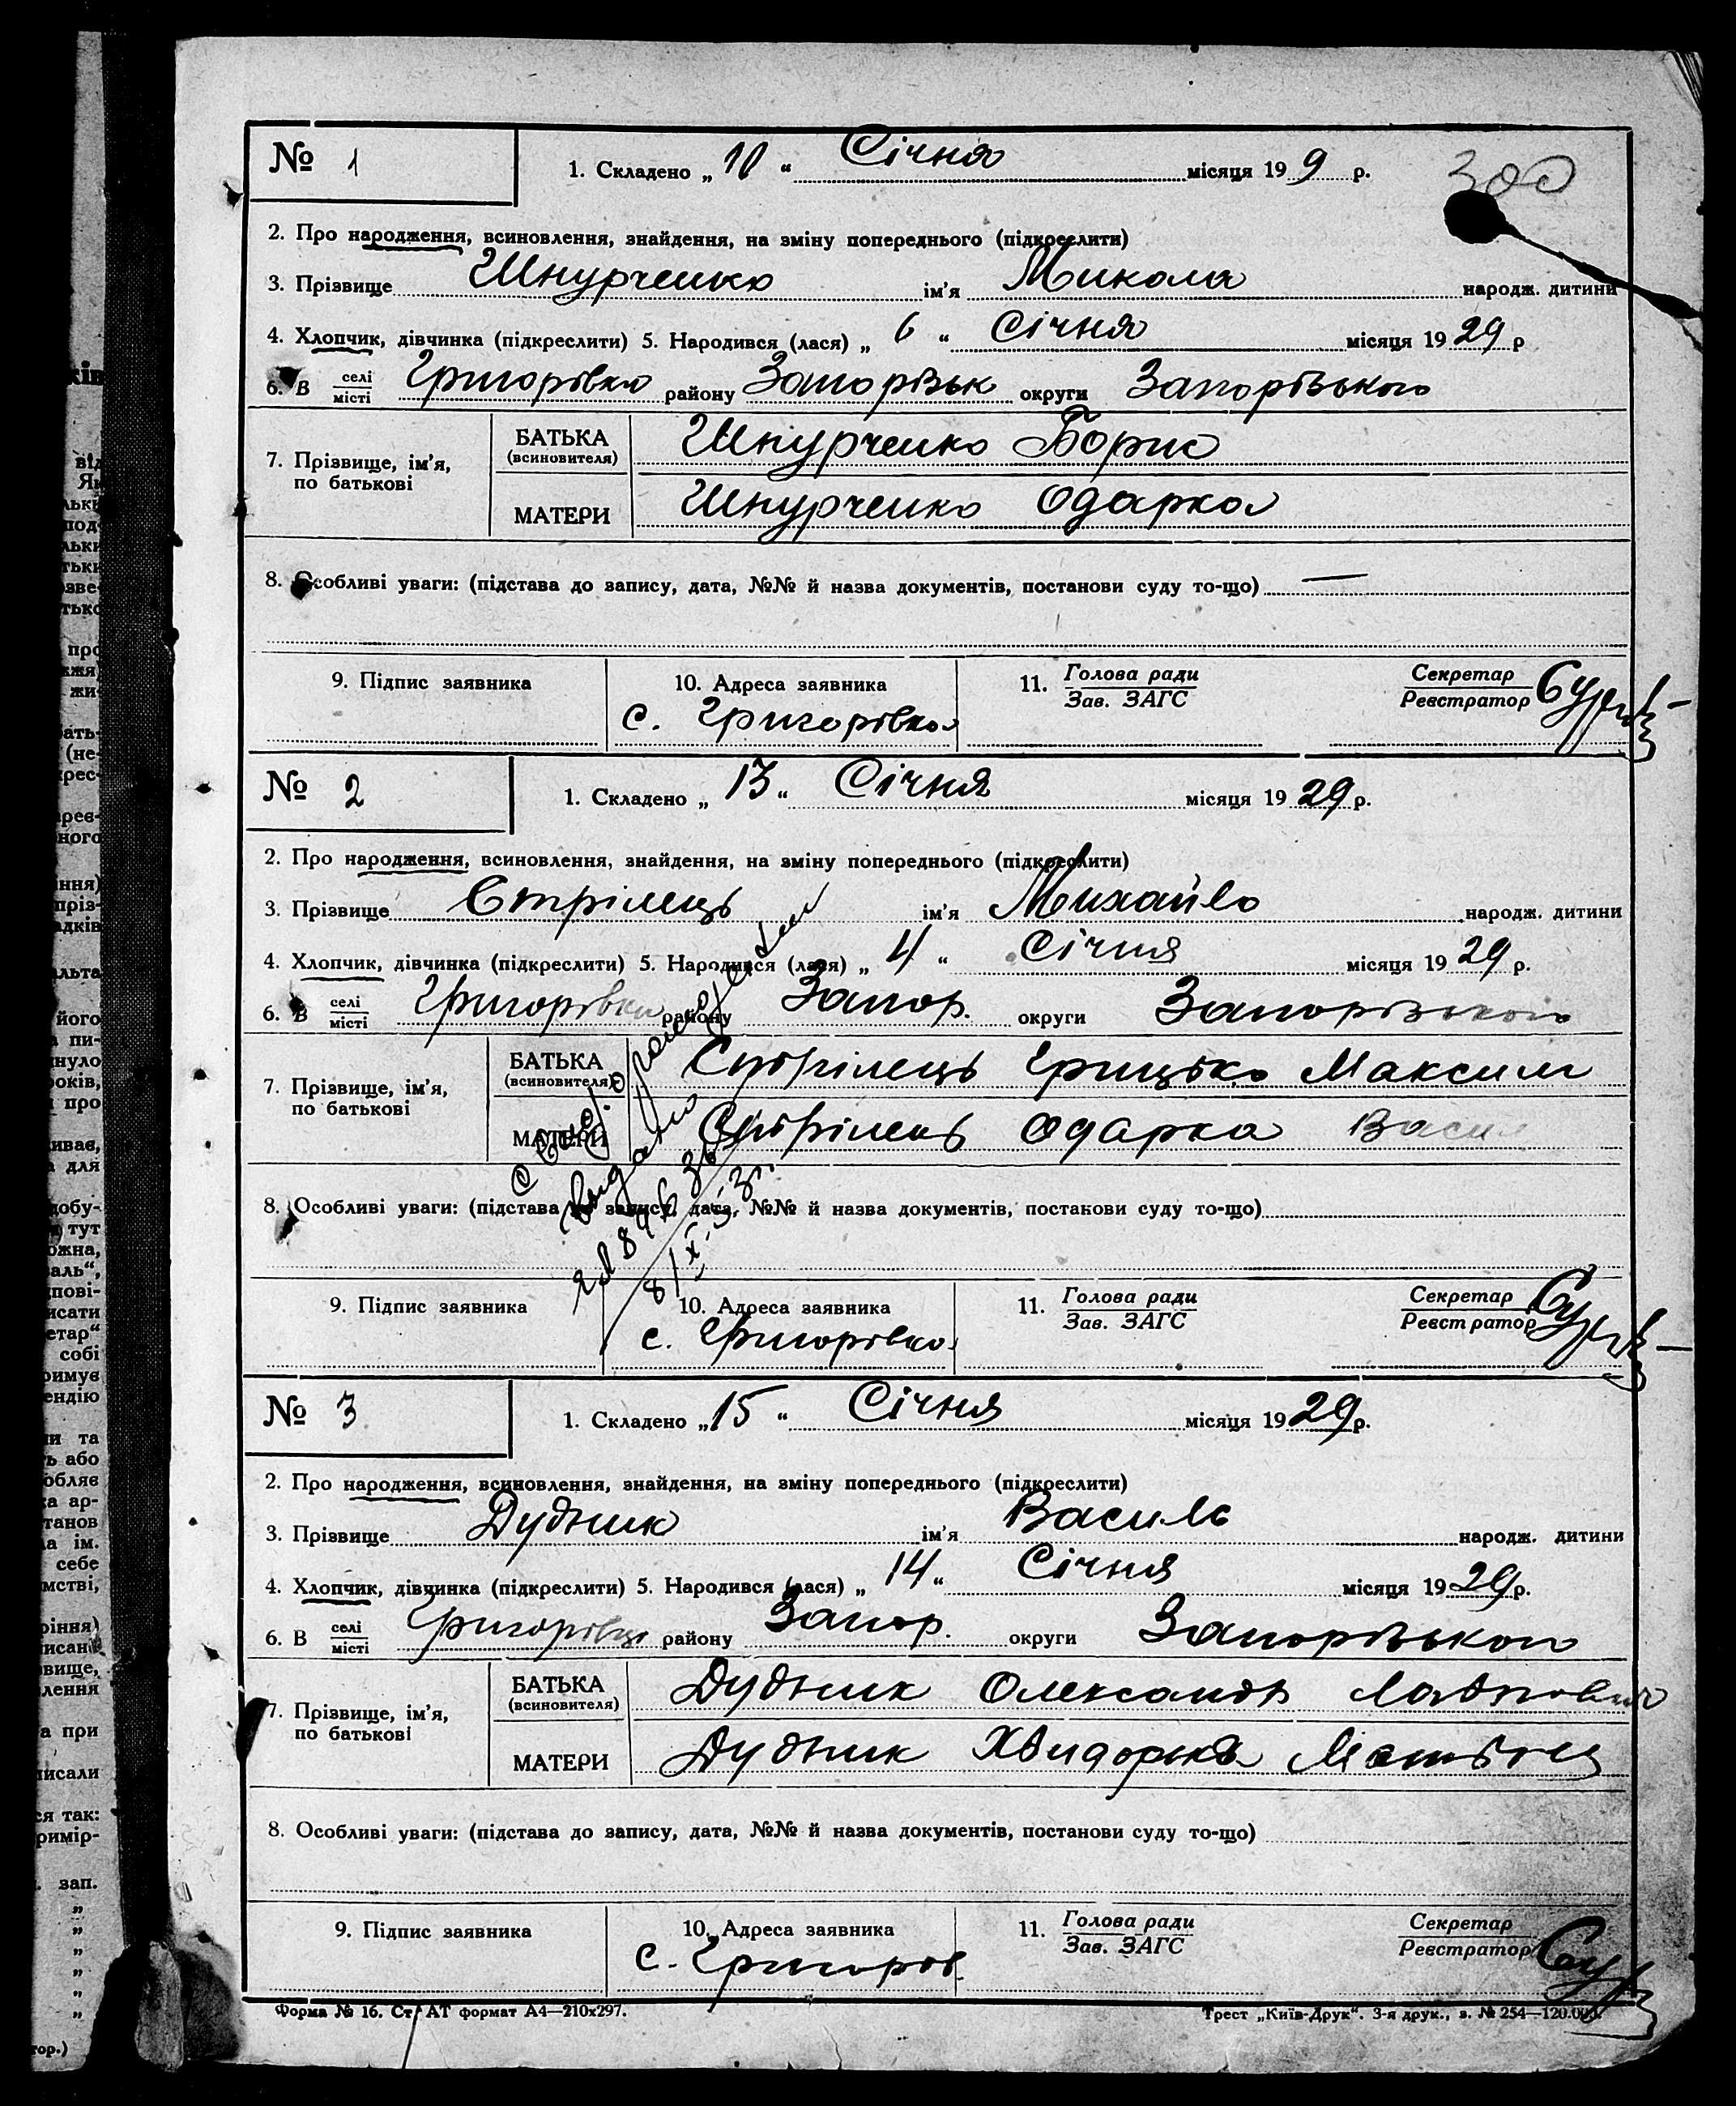 300
№ 1
1. Складено „ 10 “ Січня місяця 19 9 р.
2. Про народження, всиновлення, знайдення, на зміну попереднього (підкреслити)
3. Прізвище Шнурченко ім'я Микола народж. дитини
4. Хлопчик, дівчинка (підкреслити) 5. Народився (лася) „ 6 “ Січня місяця 19 29 р
6. В селі місті Григорівка району Запорізьк округи Запорізького
7. Прізвище, ім'я, по батькові
БАТЬКА (всиновителя) Шнурченко Борис
МАТЕРИ Шнурченко Одарка
8. Особливі уваги: (підстава до запису, дата, №№ й назва документів, постанови суду то-що) —
9. Підпис заявника
10. Адреса заявника
с. Григорівка
11. Голова ради
Зав. ЗАГС
Секретар
Реєстратор
№ 2
1. Складено „ 13 “ Січня місяця 19 29 р.
2. Про народження, всиновлення, знайдення, на зміну попереднього (підкреслити)
3. Прізвище Стрілець ім'я Михайло народж. дитини
4. Хлопчик, дівчинка (підкреслити) 5. Народився (лася) „ 4 “ Січня місяця 19 29 р.
6. В селі місті Григорівка району Запор. округи Запорізького
7. Прізвище, ім'я, по батькові
БАТЬКА (всиновителя) Стрілець Грицько Максим
МАТЕРИ Стрілець Одарка Васи
8. Особливі уваги: (підстава до запису, дата, №№ й назва документів, постанови суду то-що)
9. Підпис заявника
10. Адреса заявника
с. Григорівка
11. Голова ради
Зав. ЗАГС
Секретар
Реєстратор
№ 3
1. Складено „ 15 “ Січня місяця 19 29 р.
2. Про народження, всиновлення, знайдення, на зміну попереднього (підкреслити)
3. Прізвище Дудник ім'я Василь народж. дитини
4. Хлопчик, дівчинка (підкреслити) 5. Народився (лася) „ 14 “ Січня місяця 19 29 р.
6. В селі місті Григорівці району Запор. округи Запорізького
7. Прізвище, ім'я, по батькові
БАТЬКА (всиновителя) Дудник Олександр
МАТЕРИ Дудник Хвидорка
8. Особливі уваги: (підстава до запису, дата, №№ й назва документів, постанови суду то-що)
9. Підпис заявника
10. Адреса заявника
с. Григорів
11. Голова ради
Зав. ЗАГС
Секретар
Реєстратор
Форма № 16. Ст АТ формат А4—210х297.
Трест „Київ-Друк“. 3-я друк., з. № 254—120.000.